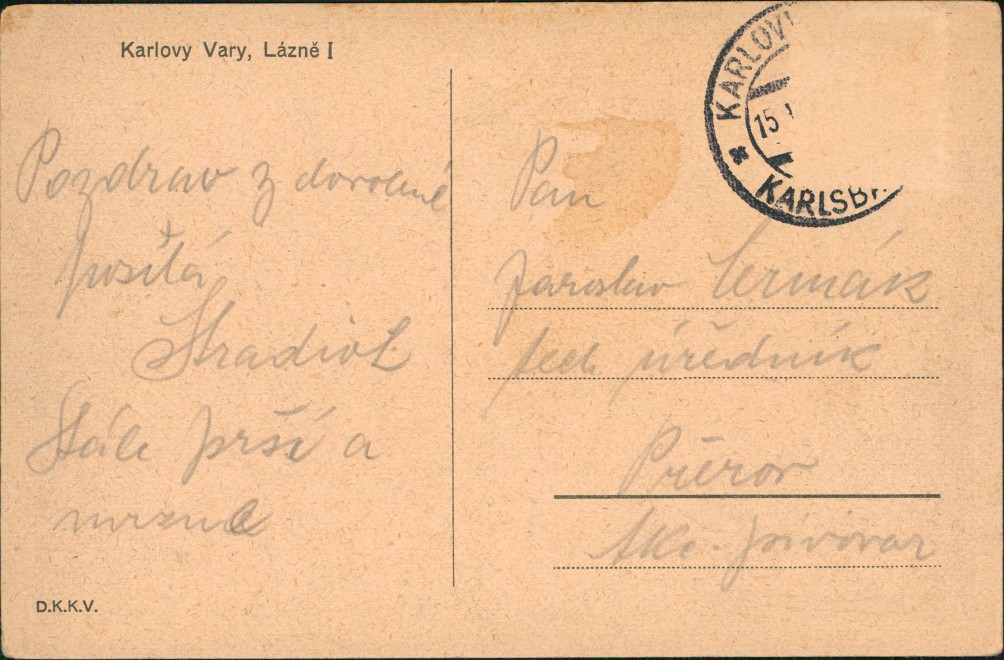 Karlovy Vary, Lázně I
Pozdrav z dovolené
posílá
Stradiot
Stále prší a
mrzne
D.K.K.V.
KARLOV
15
KARLSB
Pan
Jaroslav Čermák
tech úředník
Přerov
Akc. pivovar